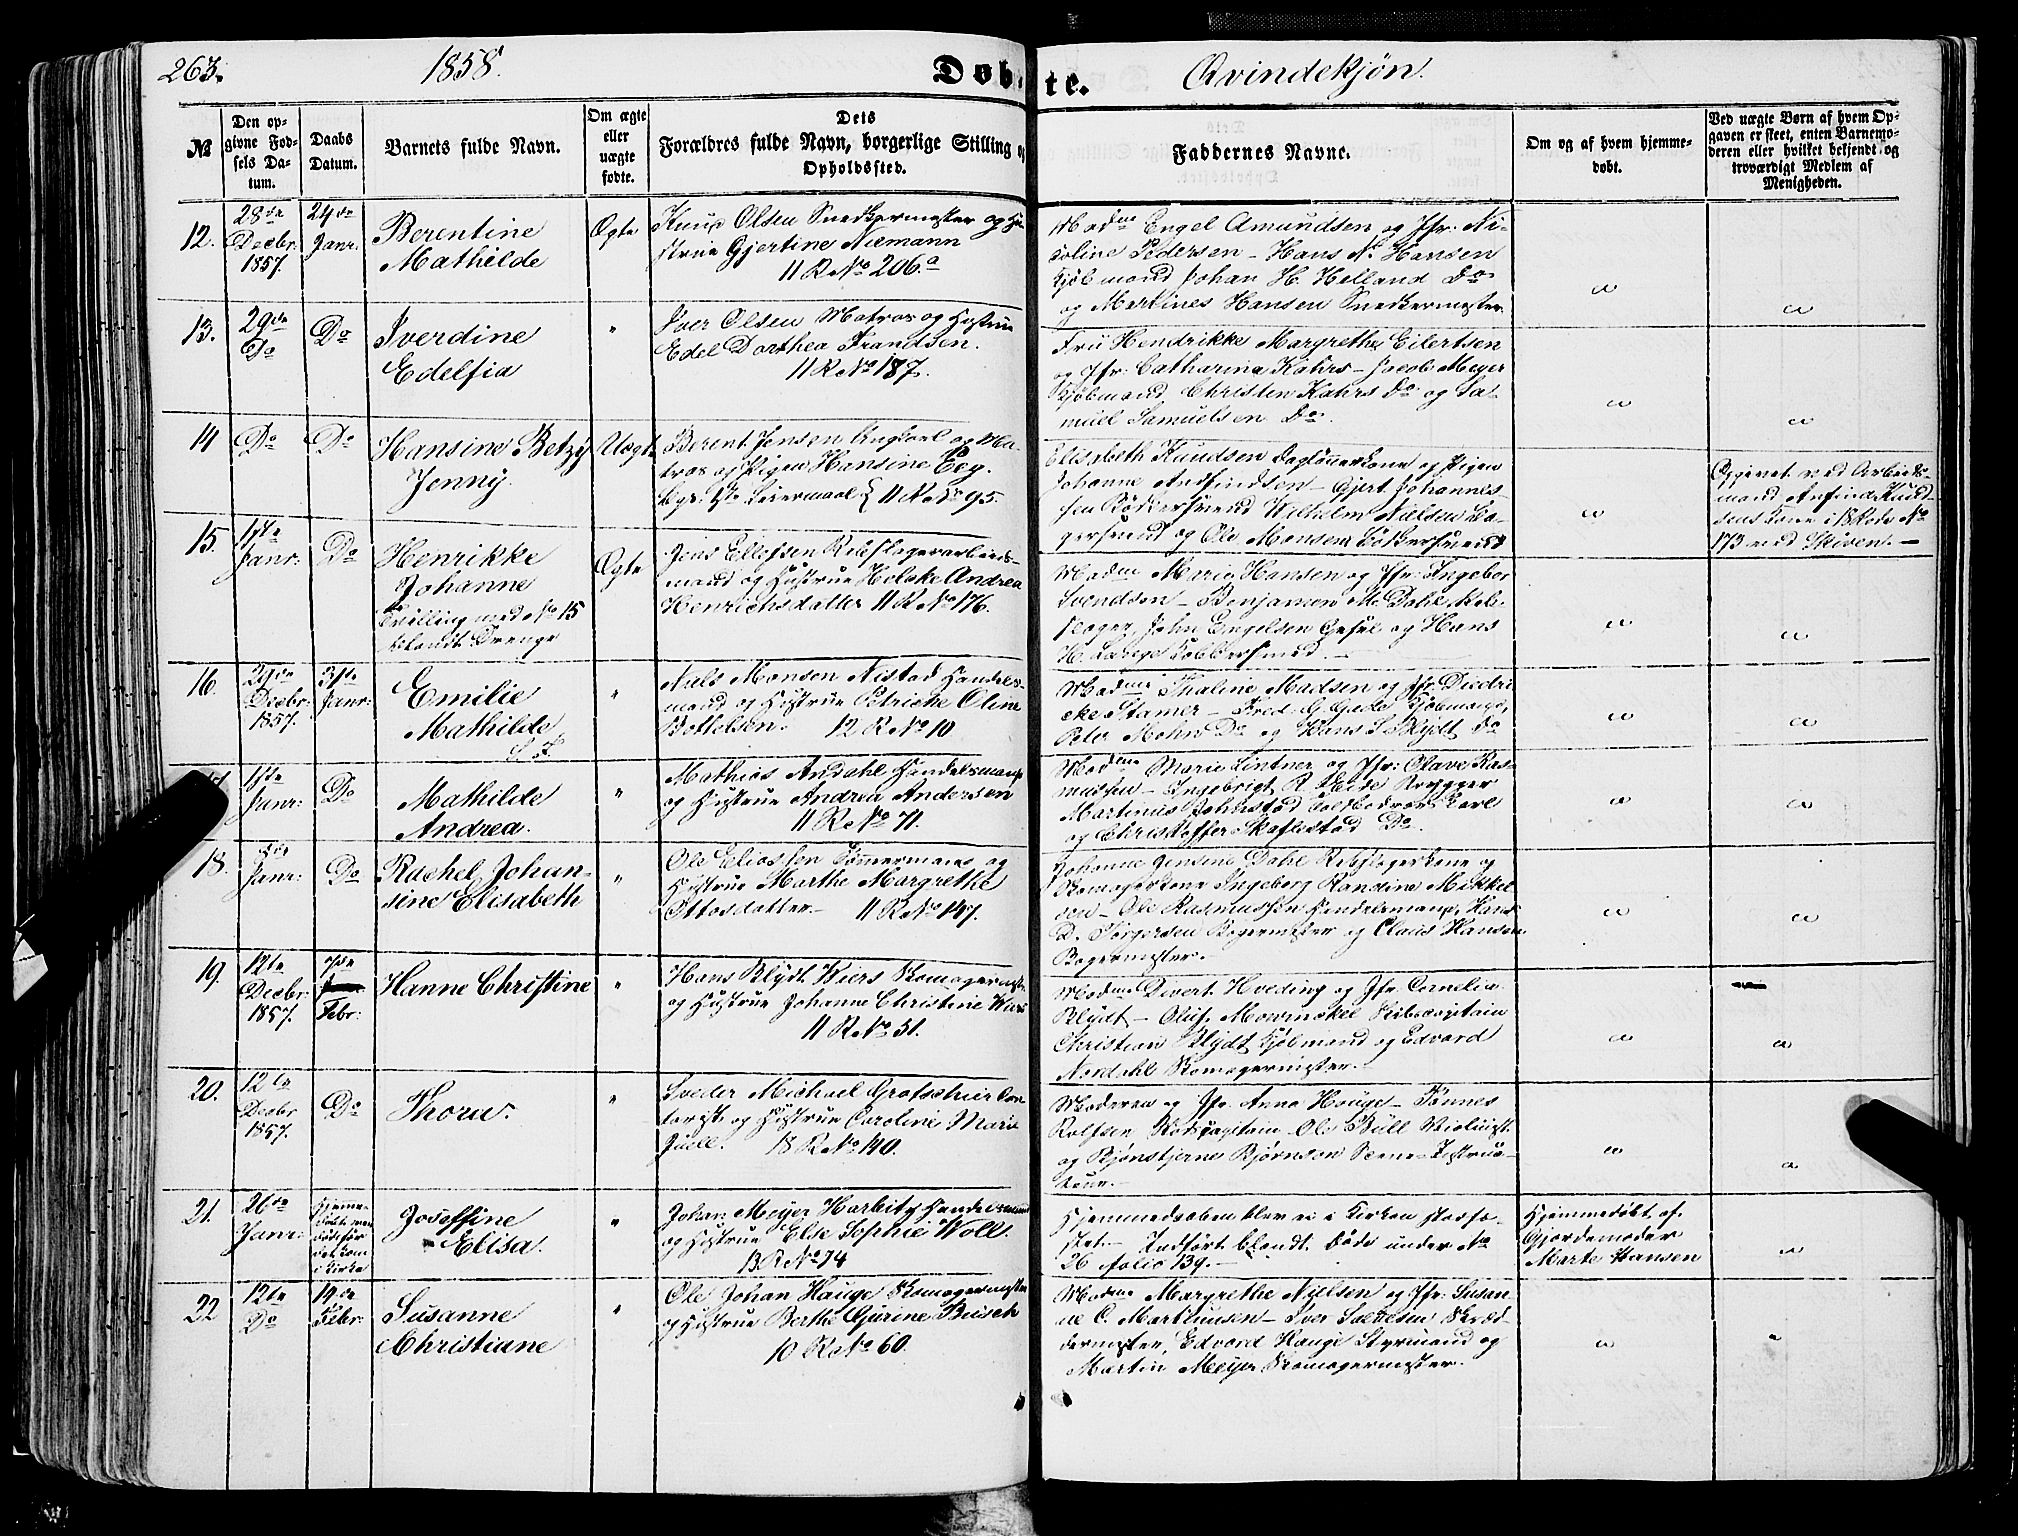 263.
1858.
Døbte.
Qvindekjøn.
No
Den opgivne Fødsels Datum.
Daabs Datum.
Barnets fulde Navn.
Om ægte eller uægte fødte.
Dets Forældres fulde Navn, borgerlige Stilling og Opholdssted.
Faddernes Navne.
Om og af hvem hjemmedøbt.
Ved uægte Børn af hvem Opgaven er skeet, enten Barnemoderen eller hvilket bekjendt og troværdigt Medlem af Menigheden.
12.
28de Decbr: 1857.
24de Janr:
Berentine
Mathilde
Ægte
Knud Olsen Snedkermester og Hu-
strue Gjertine Niemann
11 R. No 206.a
Madme Engel Amundsen og Jfr: Ni-
coline Pedersen - Hans N. Hansen
Kjøbmand Johan H. Helland Do
og Martines Hansen Snedkermester
13.
29de Do
Do
Iverdine
Edelfia
"
Iver Olsen Matros og Hustrue
Edel Dorthea Frandsen.
11 R. No 187.
Fru Hendrikke Margrethe Eilertsen
og Jfr: Catharina Kahrs - Jacob Meyer
Kjøbmand, Christen Kahrs Do og Sa-
muel Samuelsen Do
14
Do
Do
Hansine Betzy
Jenny
Uægte
Berent Jensen Ungkarl og Ma-
tros og Pigen Hansine Eeg.
11 R. No 95.
Elisabeth Knudsen Daglønnerkone og Pigen
Johanne Andfindsen - Gjert Johannes-
sen Bødkersvend Wilhelm Nielsen Ba-
gersvend og Ole Monsen Bødkersvend
Opgivet ved Arbeids-
mand Anfind Knud-
sens Kone i 18 Rode No
173 ved Skiven. -
15.
1ste Janr:
Do
Henrikke
Johanne
Tvilling med No 15
iblandt Drenge
Ægte
Jens Ellefsen Rebslagerarbeids-
mand og Hustrue Andrea
Henrichsdatter 11 R. No 176.
Madme Marie Hansen og Jfr: Ingebor
Svendsen - Benjamin M. Dahl Reb-
slager, John Engelsen Gesel og Hans
H. Lange Kobbersmed
16.
29de Decbr: 1857.
31te Janr:
Emilie
Mathilde
"
Niels Monsen Nistad Handels-
mand og Hustrue Petricke Oline
Bottelsen. 12 R. No 10
Madme Thaline Madsen og Jfr: Diedri-
cke Stamer - Fred: G. Gade Kjøbmand,
Peter Mohn Do og Hans S. Blydt Do
1ste Janr:
Do
Mathilde
Andrea.
"
Mathias Andahl Handelsmand
og Hustrue Andrea Andersen
11 R. No 71.
Madme Marie Lintner og Jfr: Olave Ras-
mussen - Ingebrigt R. Brygger
Martinus Johnstad Karl
og Christoffer Skaflestad Do.
18.
Janr:
Do
Rachel Johan-
sine Elisabeth
"
Ole Eliassen Tømmermand og
Hustrue Marthe Margrethe
Ottosdatter - 11 R. No 147.
Johanne Jensine Dahl Rebslagerkone og
Skomagerkone Ingeborg Randine Mikkel
sen - Ole Rasmussen Handelsmand, Hans
D. Torgersen Bagermester og Claus Hansen
Bagermester.
19.
12te Decbr: 1857.
7de Febr:
Hanne Christine
"
Hans Blydt Wiers Skomagermester
og Hustrue Johanne Christine Wiers
11 R. No 51.
Madme Divert Hveding og Jfr: Cornelia
Blydt - Oluf Mowinckel Skibscapitain
Christian Blydt Kjøbmand og Edvard
Nordahl Skomagermester.
20.
12te Decbr 1857.
Do
Thora.
"
Sveder Michael Grotschier Con-
torist og Hustrue Caroline Marie
Juell. 18 R. No 140.
Moderen og Jfr. Anna Houge - Tønnes
Rolfsen Skibscapitain - Ole Bull Violinist
og Bjørnstjerne Bjørnson Scene-Instruc-
teur. -
21.
26de Janr:
Hjemme-
døbt men
død før
det kom
i Kirke
Joseffine
Elisa.
"
Johan Meyer Harbitz Handelsmand
og Hustrue Else Sophie Woll.
13 R. No 74
Hjemmedaaben blev ei i Kirken stadfæ-
stet. - Indført blandt døde under No
26 folio 139. -
Hjemmedøbt af
Gjordemoder
Marte Hansen
22
12te Do
19de Febr:
Susanne
Christiane
"
Ole Johan Hauge Skomagermester
og Hustrue Berthe Gurine Busch
10 R. No 60.
Madme Margrethe Nielsen og Jfr: Susan-
ne C. Martinusen - Iver Salvesen Skræd-
dermester, Edvard Hauge Styrmand og
Martin Meyer Skomagermester.